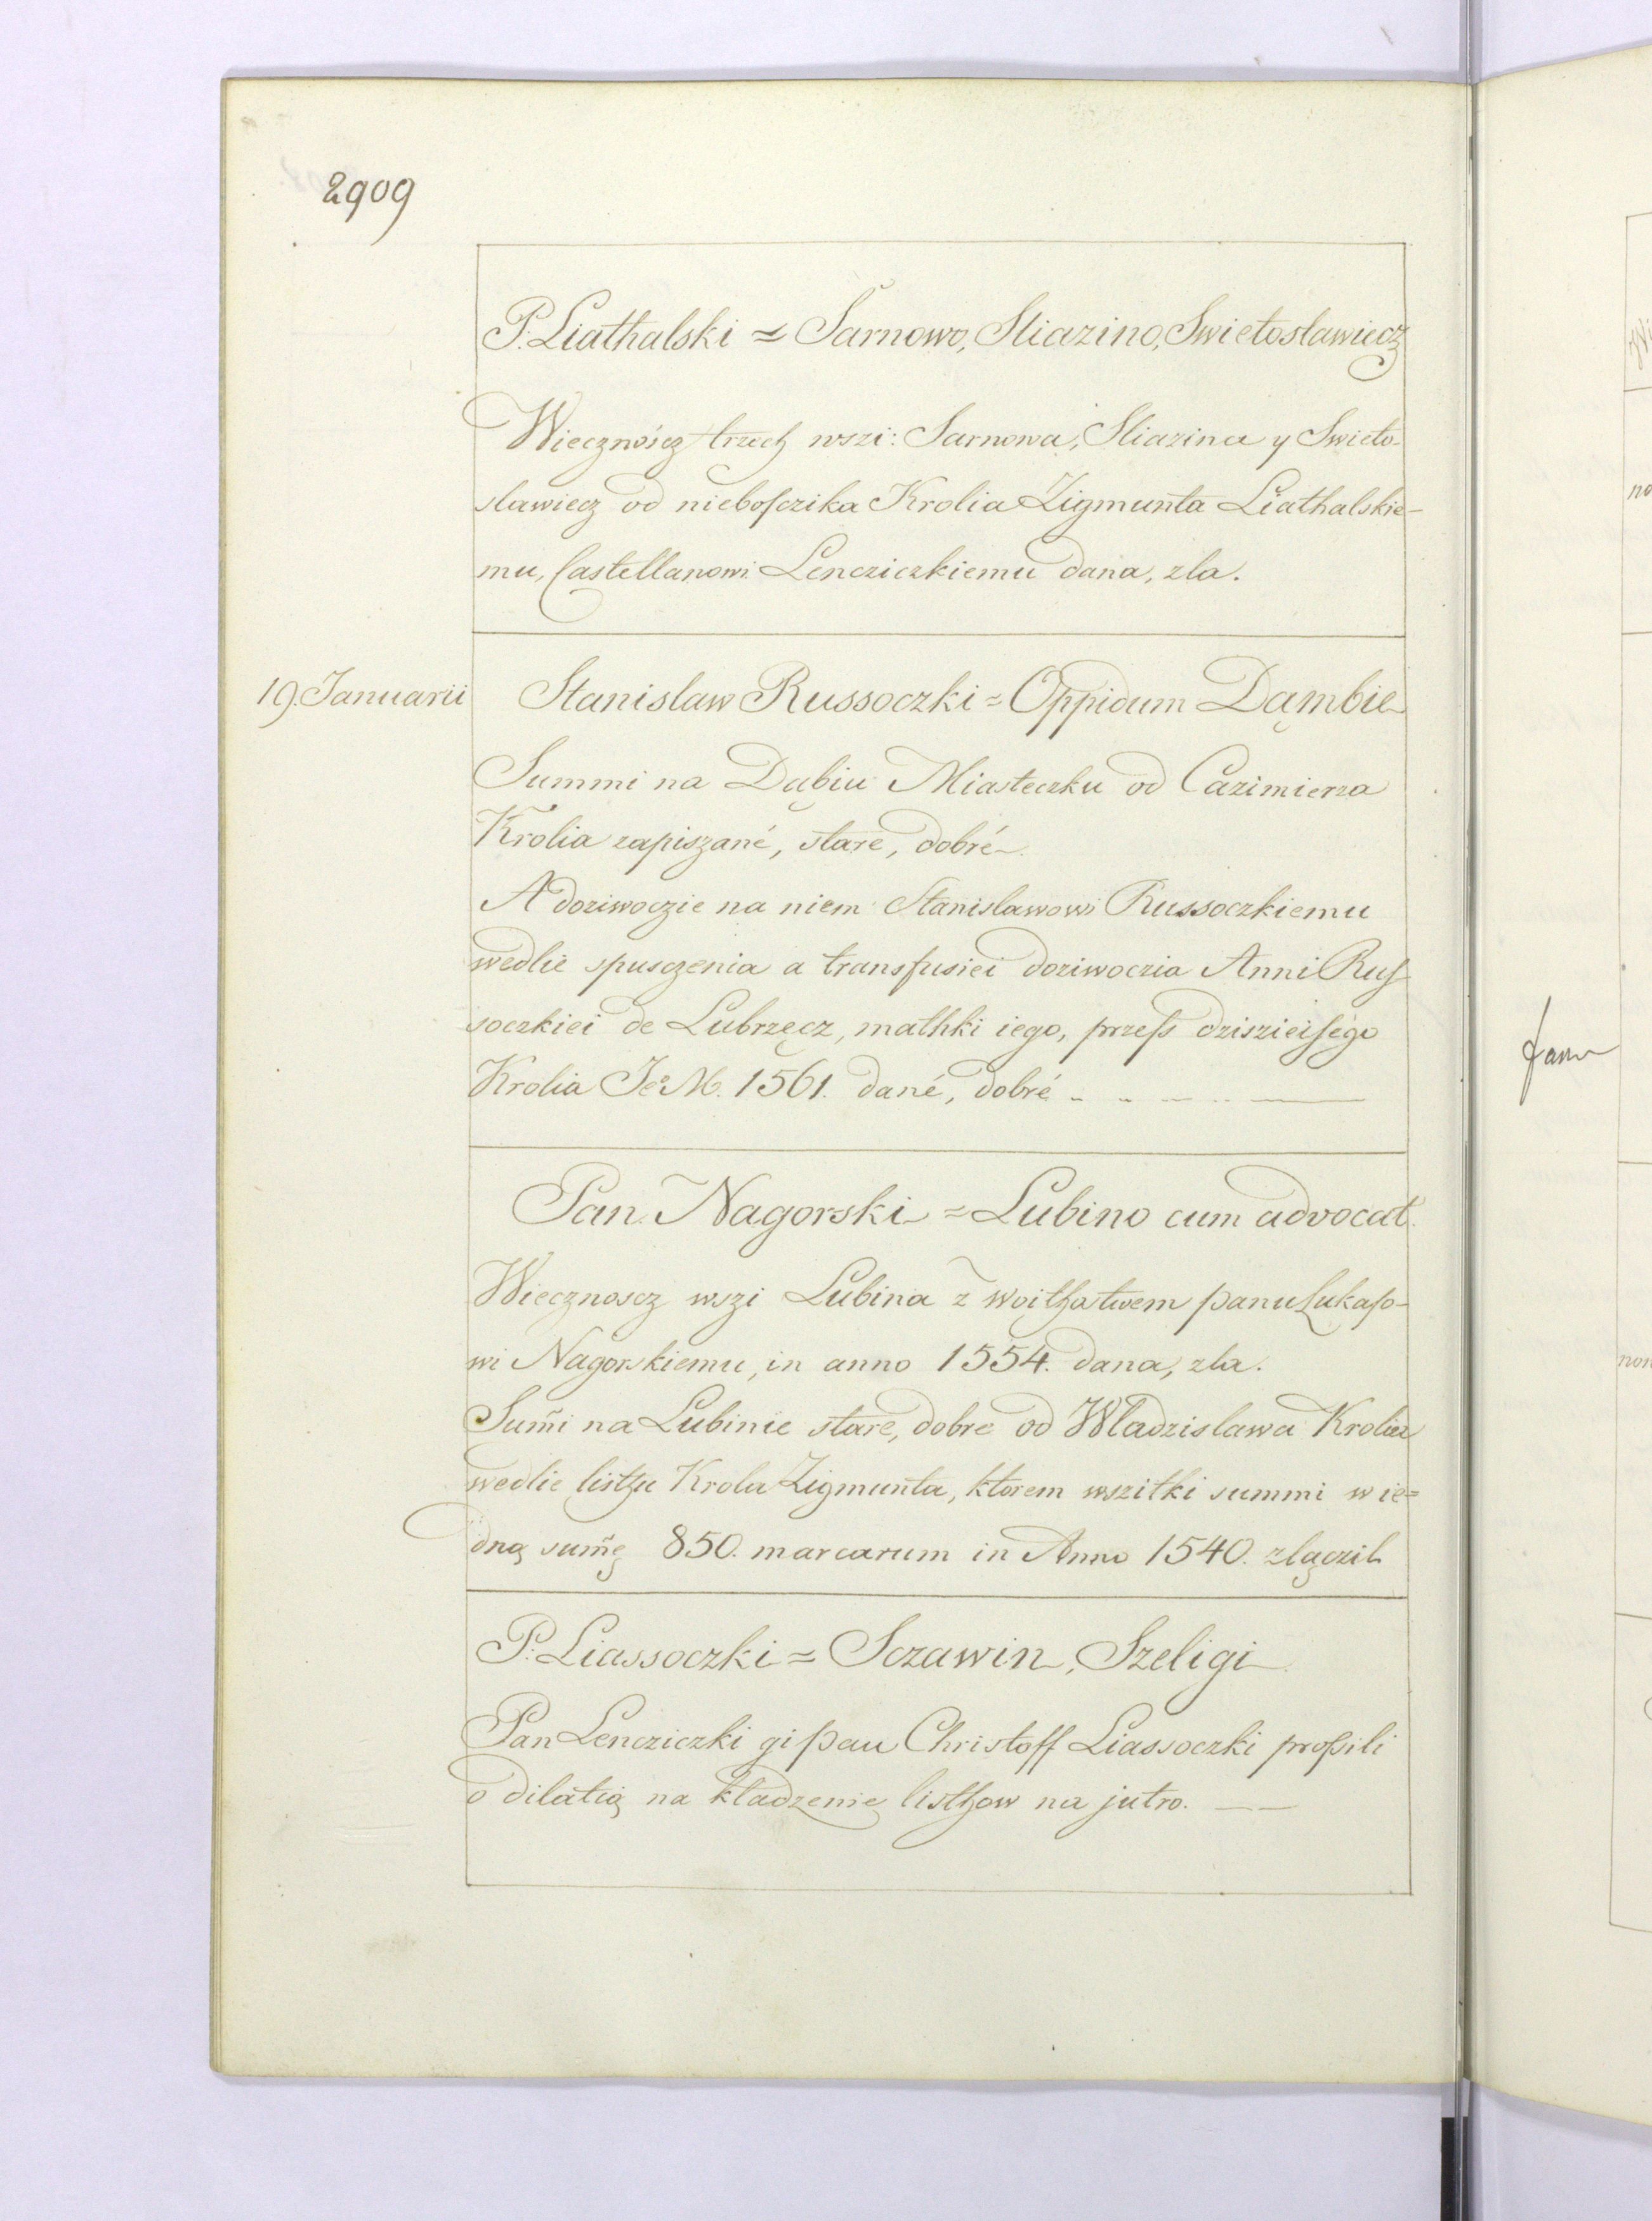 2909
P. Liathalski = Sarnowo, Sliazino, Swietoslawiecz
Wiecznoscz trzech wszi: Sarnowa, Sliazina y Swieto-
slawiecz od nieboſczika Krolia Zigmunta Liathalskie-
mu, Castellanowi Lencziczkiemu dana, zla.
19. Januarii
Stanislaw Russoczki = Oppidum Dąmbie
Summi na Dąbiu Miasteczku od Cazimierza
Krolia zapiszané, staré, dobré
A doziwoczie na niem Stanislawowi Russoczkiemu
wedlie spusczenia a transfusiei doziwoczia Anni Ruſ
soczkiei de Lubrzęcz, mathki iego, przeſs dziszieiſego
Krolia Je° M. 1561. dané, dobré
Pan Nagorski = Lubino cum advocat.
Wiecznoscz wszi Lubina z woithostwem panu Lukaſo-
wi Nagorskiemu, in anno 1554. dana, zla.
Sum̃i na Lubinie staré, dobre od Wladzislawa Krolia
wedlie listhu Krola Zigmunta, ktorem wszitki summi w ie=
dną sum̃ę 850. marcarum in Anno 1540. zlączil
P. Liassoczki = Sczawin, Szeligi
Pan Lencziczki gi pan Christoff Liassoczki proſsili
o dilatią na kladzenie listhow na jutro.